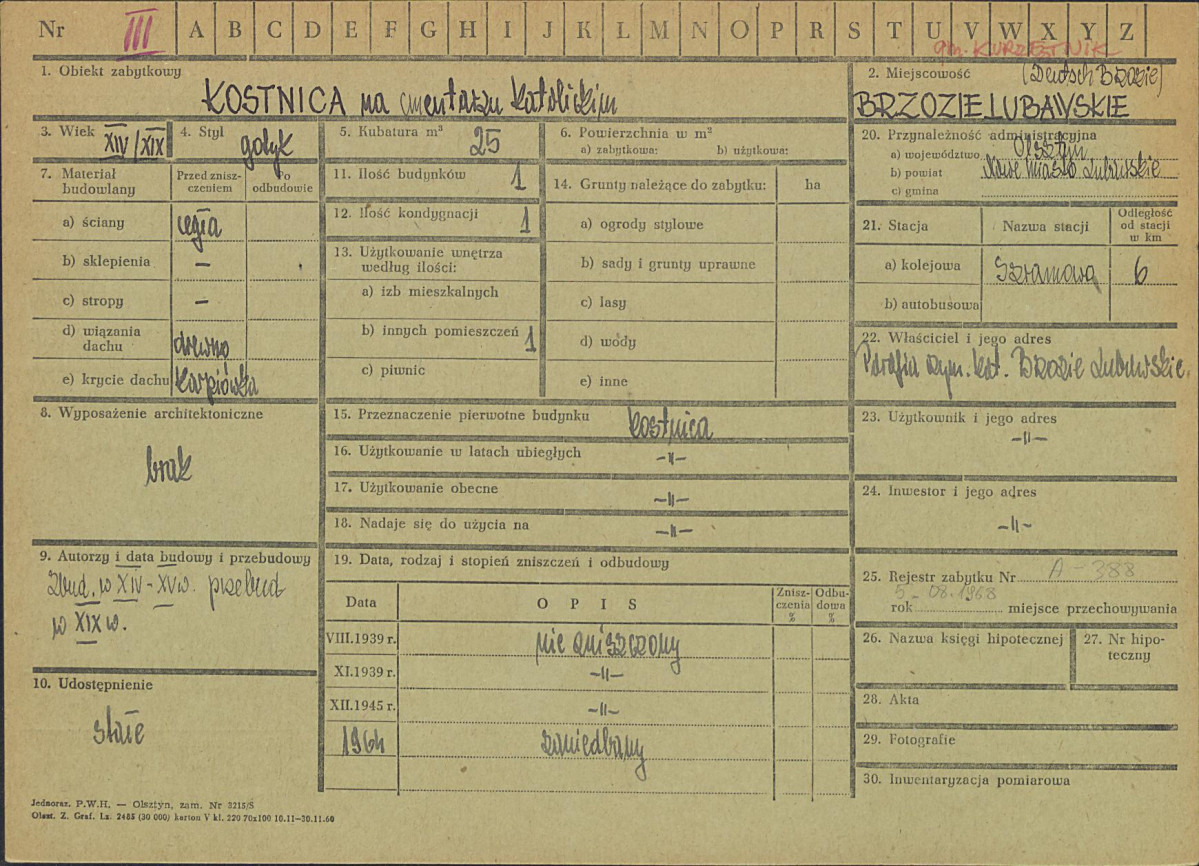 Nr III A B C D E F G H I J K L M N O P R S T U V W X Y Z
gm. KURZĘTNIK
1. Obiekt zabytkowy
KOSTNICA na cmentarzu katolickim
2. Miejscowość (Deutsch Brzozie)
BRZOZIE LUBAWSKIE
3. Wiek XIV/XIX
4. Styl gotyk
5. Kubatura m³ 25
6. Powierzchnia w m²
a) zabytkowa: b) użytkowa:
7. Materiał budowlany
Przed zniszczeniem
Po odbudowie
a) ściany cegła
b) sklepienia —
c) stropy —
d) wiązania dachu drewno
e) krycie dachu karpiówka
8. Wyposażenie architektoniczne
brak
9. Autorzy i data budowy i przebudowy
Zbud. w XIV-XV w. przebud
w XIX w.
10. Udostępnienie
stałe
11. Ilość budynków 1
12. Ilość kondygnacji 1
13. Użytkowanie wnętrza
według ilości:
a) izb mieszkalnych
b) innych pomieszczeń 1
c) piwnic
14. Grunty należące do zabytku: ha
a) ogrody stylowe
b) sady i grunty uprawne
c) lasy
d) wody
e) inne
15. Przeznaczenie pierwotne budynku kostnica
16. Użytkowanie w latach ubiegłych -"-
17. Użytkowanie obecne -"-
18. Nadaje się do użycia na -"-
19. Data, rodzaj i stopień zniszczeń i odbudowy
Data O P I S Zniszczenia % Odbudowa %
VIII.1939 r. nie zniszczony
XI.1939 r. -"-
XII.1945 r. -"-
1964 zaniedbany
20. Przynależność administracyjna
a) województwo Olsztyn
b) powiat Nowe Miasto Lubawskie
c) gmina
21. Stacja Nazwa stacji Odległość od stacji w km
a) kolejowa Szramowo 6
b) autobusowa
22. Właściciel i jego adres
Parafia rzym. kat. Brzozie Lubawskie
23. Użytkownik i jego adres
-"-
24. Inwestor i jego adres
-"-
25. Rejestr zabytku Nr A-388
5.08.1968
rok miejsce przechowywania
26. Nazwa księgi hipotecznej
27. Nr hipoteczny
28. Akta
29. Fotografie
30. Inwentaryzacja pomiarowa
Jednoraz. P.W.H. — Olsztyn, zam. Nr 3215/S
Olszt. Z. Graf. Lz. 2485 (30 000) karton V kl. 220 70x100 10.11—30.11.60